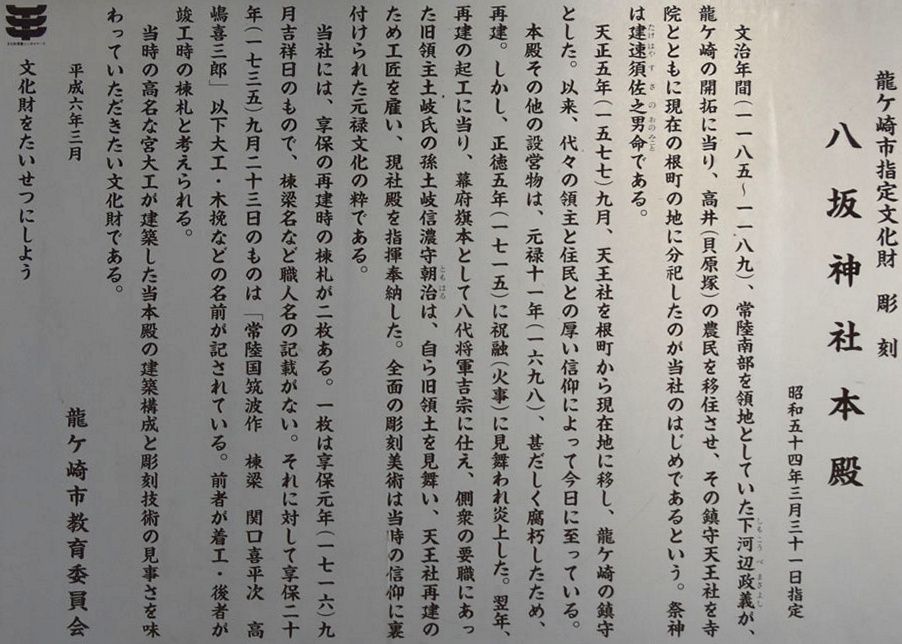 龍ケ崎市指定文化財　彫刻
八坂神社本殿
昭和五十四年三月三十一日指定
文治年間(一一八五～一一八九)、常陸南部を領地としていた下河辺政義が、
龍ケ崎の開拓に当り、高井(貝原塚)の農民を移住させ、その鎮守天王社を寺
院とともに現在の根町の地に分祀したのが当社のはじめであるという。祭神
は建速須佐之男命である。
天正五年(一五七七)九月、天王社を根町から現在地に移し、龍ケ崎の鎮守
とした。以来、代々の領主と住民との厚い信仰によって今日に至っている。
本殿その他の設営物は、元禄十一年(一六九八)、甚だしく腐朽したため、
再建。しかし、正徳五年(一七一五)に祝融(火事)に見舞われ炎上した。翌年、
再建の起工に当り、幕府旗本として八代将軍吉宗に仕え、側衆の要職にあっ
た旧領主土岐氏の孫土岐信濃守朝治は、自ら旧領土を見舞い、天王社再建の
ため工匠を雇い、現社殿を指揮奉納した。全面の彫刻美術は当時の信仰に裏
付けられた元禄文化の粋である。
当社には、享保の再建時の棟札が二枚ある。一枚は享保元年(一七一六)九
月吉祥日のもので、棟梁名など職人名の記載がない。それに対して享保二十
年(一七三五)九月二十三日のものは「常陸国筑波作　棟梁　関口喜平次　高
嶋喜三郎」以下大工・木挽などの名前が記されている。前者が着工・後者が
竣工時の棟札と考えられる。
当時の高名な宮大工が建築した当本殿の建築構成と彫刻技術の見事さを味
わっていただきたい文化財である。
平成六年三月
龍ケ崎市教育委員会
文化財をたいせつにしよう